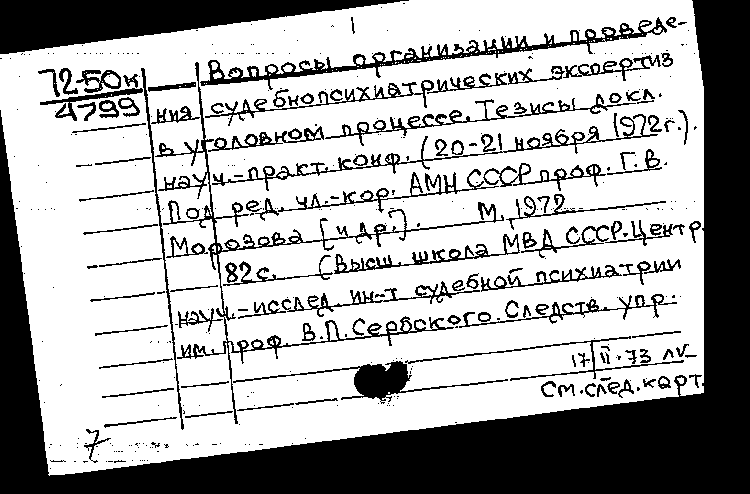 1
72-50к
4799
Вопросы организации и проведе-
ния судебнопсихиатрических экспертиз
в уголовном процессе. Тезисы докл.
науч.-практ. конф. (20-21 ноября 1972г.).
Под ред. чл.-кор. АМН СССР проф. Г.В.
Морозова [и др.]. М., 1972
82 с. (Высш. школа МВД СССР. Центр.
науч.-исслед. ин-т судебной психиатрии
им. проф. В.П. Сербского. Следств. упр.
17/II-73
См. след. карт.
7